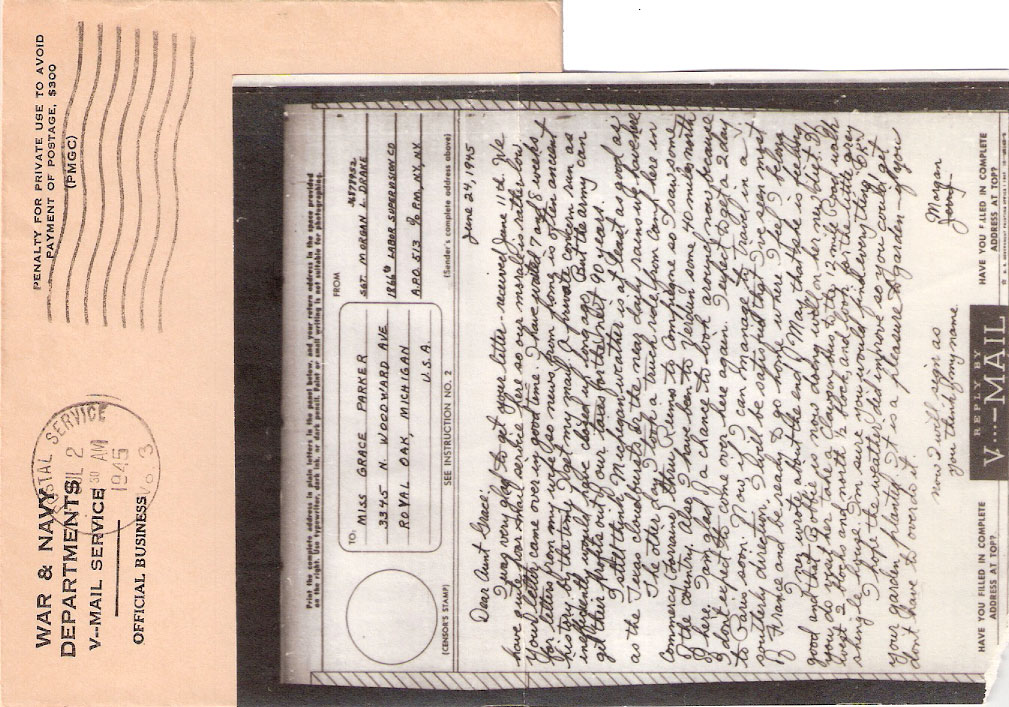 PENALTY FOR PRIVATE USE TO AVOID
PAYMENT OF POSTAGE, $300
(PMGC)
WAR & NAVY
DEPARTMENTS
V--MAIL SERVICE
OFFICIAL BUSINESS
POSTAL SERVICE
JUL 2
30 AM
1945
No. 3
Print the complete address in plain letters in the panel below, and your return address in the space provided
on the right. Use typewriter, dark ink, or dark pencil. Faint or small writing is not suitable for photographing.
TO:
MISS GRACE PARKER
3345 N. WOODWARD AVE
ROYAL OAK, MICHIGAN
U.S.A.
FROM
SGT. MORGAN L. DRAKE
1866th LABOR SUPERVISION CO
A.P.O. 513 % P.M., N.Y., NY
(CENSOR'S STAMP)
SEE INSTRUCTION NO. 2
(Sender's complete address above)
June 24, 1945
Dear Aunt Grace:
I was very glad to get your letter received June 11th. We
have quite poor mail service here so our morale is rather low.
Your letter came over in good time. I have waited 7 and 8 weeks
for letters from my wife so news from home is often ancient
history by the time I get my mail. A private concern run as
inefficiently would have closed up long ago. But the army can
get their profits out of our taxes for the next 90 years.
I still think Michigan weather is at least as good as
as the Texas cloudbursts by the near daily rains we have here
The other day I took a truck ride from Camp here in
Commercy, France, thru Reims to Compiegne so I saw some
of the country. Also I have been to Verdun some 40 miles north
of here. I am glad of a chance to look around now because
I don't expect to come over here again. I expect to get a 2 day
to Paris soon. Now if I can manage to travel in a
southerly direction, I will be satisfied that I've seen most
of France and be ready to go home where I feel I belong
Amy wrote about the end of May that she is feeling
good and that Bobbie is now doing well on her new diet. If
you do go to
west 2 blocks and north 1/2 block, and look for the little grey
shingle house. I'm sure you would find everything "OK"
I hope the weather did improve so you could get
your garden planted. It is a pleasure to garden - if you
don't have to overdo it.
now I will sign as
you think of my name
Morgan
HAVE YOU FILLED IN COMPLETE
ADDRESS AT TOP?
REPLY BY
V···—MAIL
HAVE YOU FILLED IN COMPLETE
ADDRESS AT TOP?